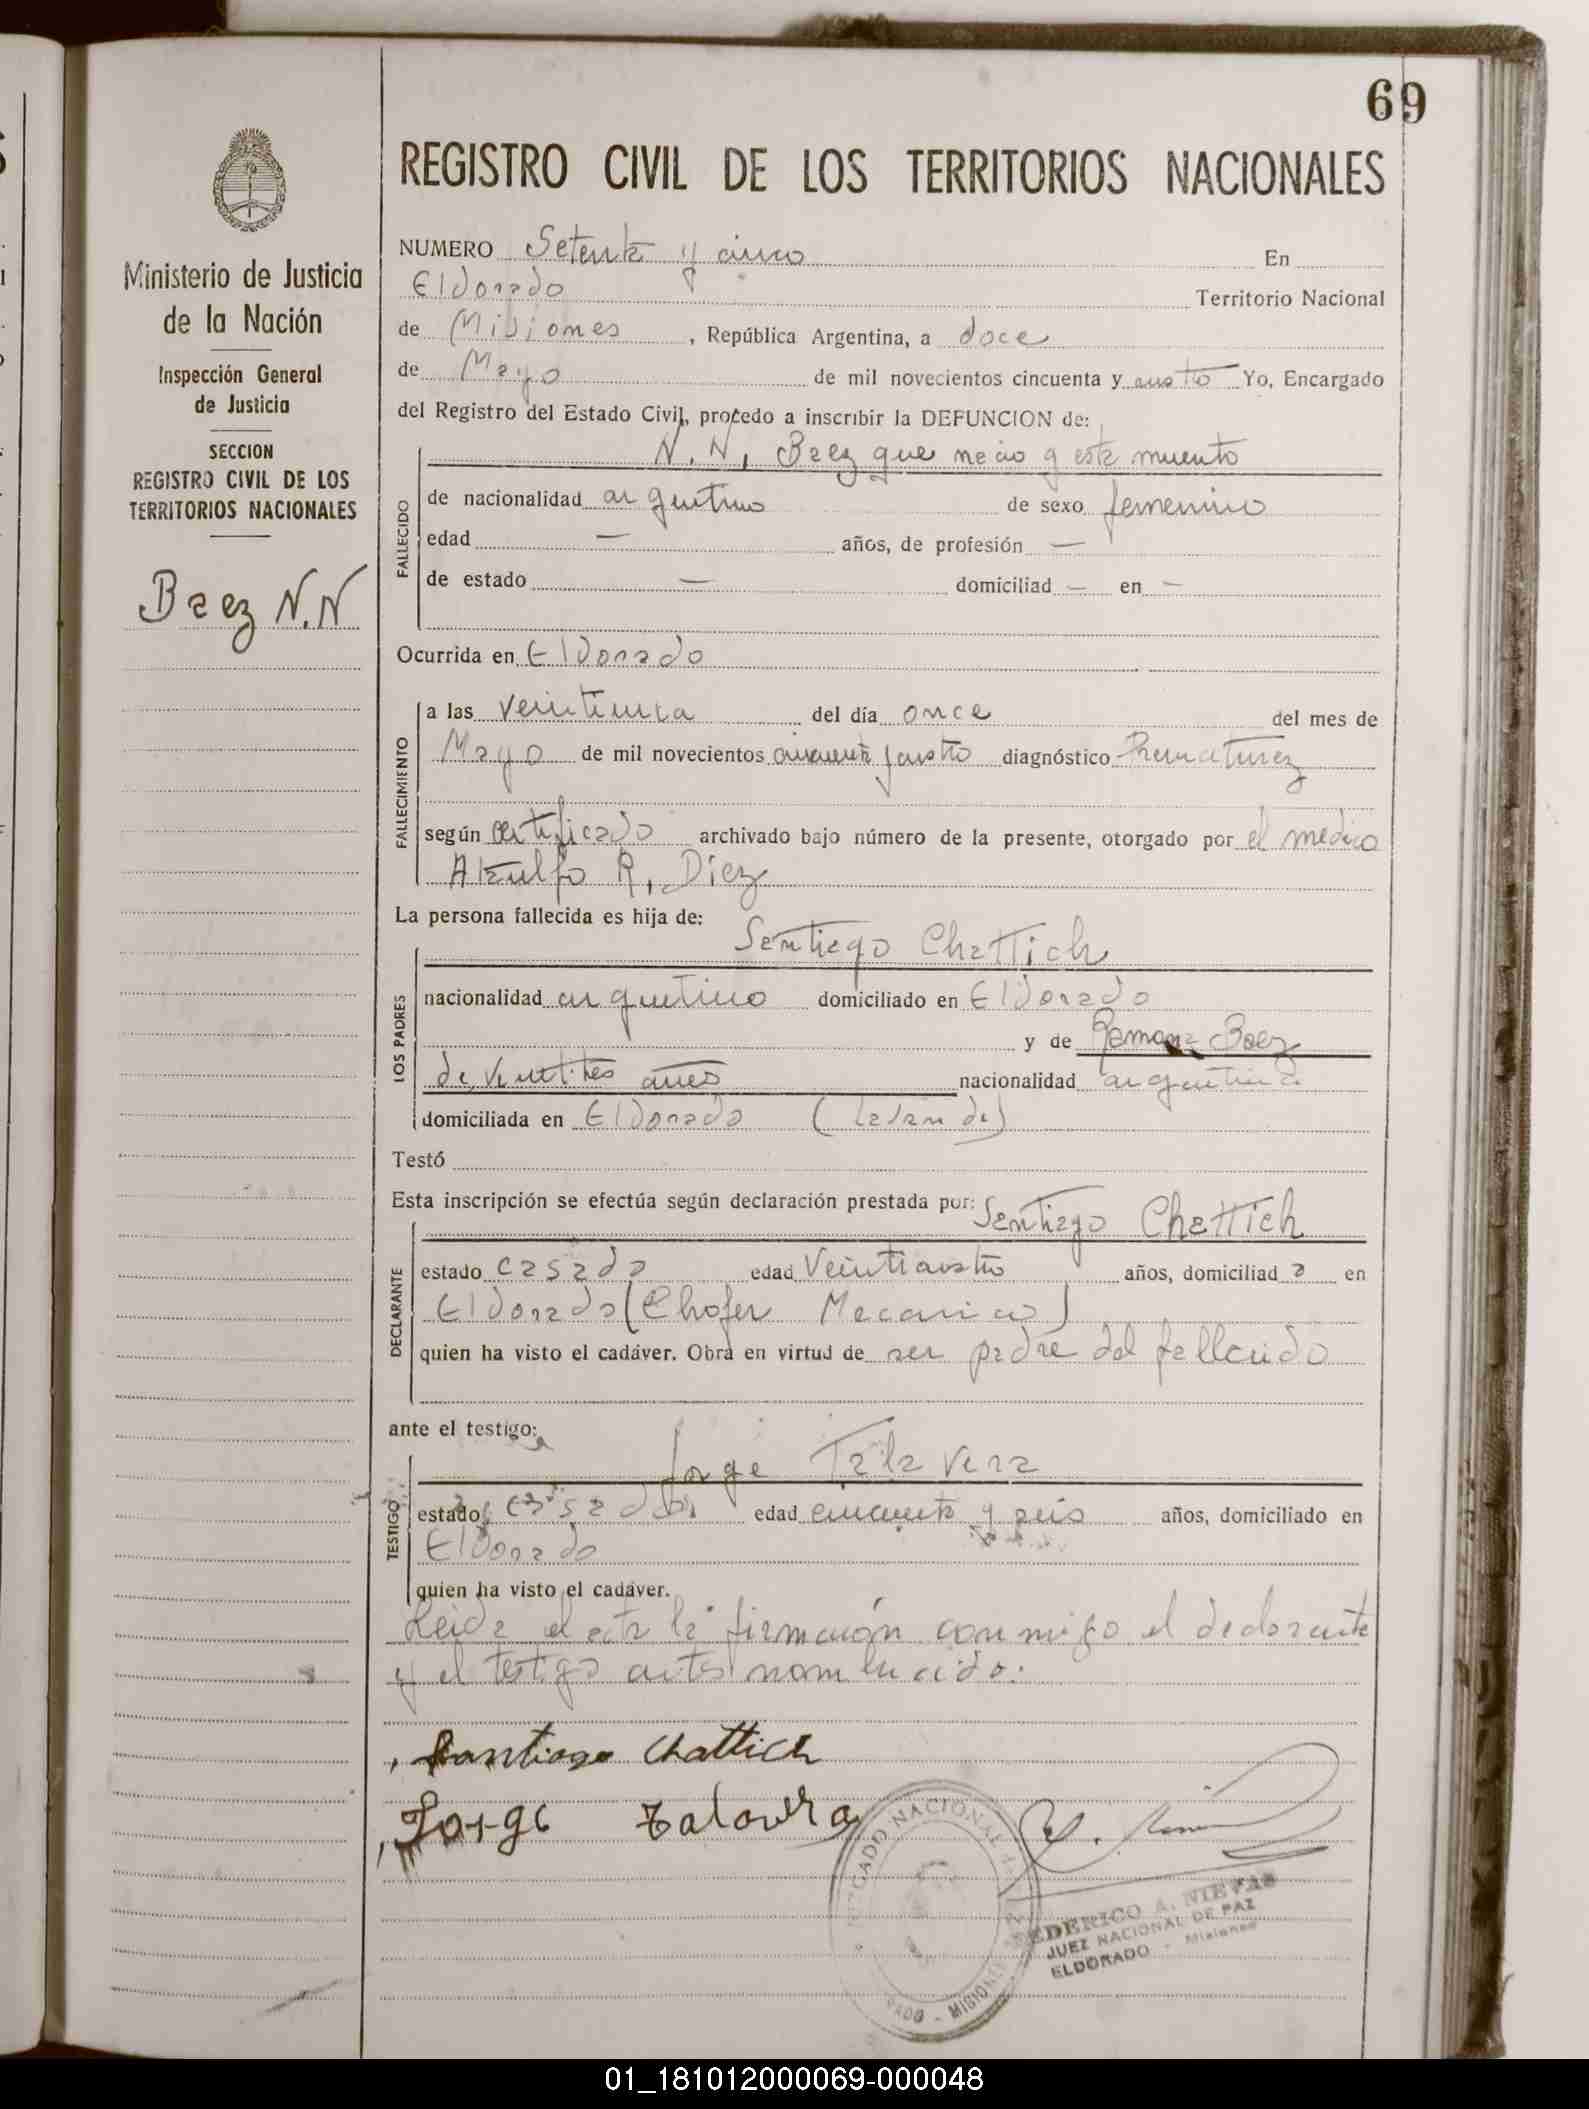 69
REGISTRO CIVIL DE LOS TERRITORIOS NACIONALES
Ministerio de Justicia
de la Nación
Inspección General
de Justicia
SECCION
REGISTRO CIVIL DE LOS
TERRITORIOS NACIONALES
Baez N.N
NUMERO Setenta y cinco En
Eldorado Territorio Nacional
de Misiones , República Argentina, a doce
de Mayo de mil novecientos cincuenta y cuatro Yo, Encargado
del Registro del Estado Civil, procedo a inscribir la DEFUNCION de:
N.N, Baez que nacio y esta muerto
FALLECIDO
de nacionalidad argentino de sexo femenino
edad — años, de profesión —
de estado — domiciliad — en —
Ocurrida en Eldorado
FALLECIMIENTO
a las del día once del mes de
Mayo de mil novecientos cincuenta y cuatro diagnóstico Prematurez
según certificado archivado bajo número de la presente, otorgado por el medico
Ataulfo R. Diez
La persona fallecida es hija de:
Santiago Chattich
LOS PADRES
nacionalidad argentino domiciliado en Eldorado
y de Ramona Baez
de veintitres años nacionalidad argentina
domiciliada en Eldorado
Testó
Esta inscripción se efectúa según declaración prestada por: Santiago Chattich
DECLARANTE
estado casado edad Veinticuatro años, domiciliad o en
Eldorado (Chofer Mecanico)
quien ha visto el cadáver. Obra en virtud de ser padre del fallecido
ante el testigo:
Jorge Talavera
TESTIGO
estado casado edad cincuenta y seis años, domiciliado en
Eldorado
quien ha visto el cadáver.
Leida el acta la firmarón conmigo el declarante
y el testigo antes nombrado.
Santiago Chattich
Jorge Talavera
JUZGADO NACIONAL
MISIONES
FEDERICO A. NIEVAS
JUEZ NACIONAL DE PAZ
ELDORADO - Misiones
01_181012000069-000048